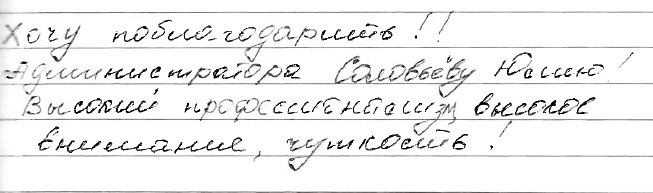 Хочу поблагодарить!!
Администратора Соловьёву Юлию!
Высокий профессионализм высокое
внимание, чуткость!